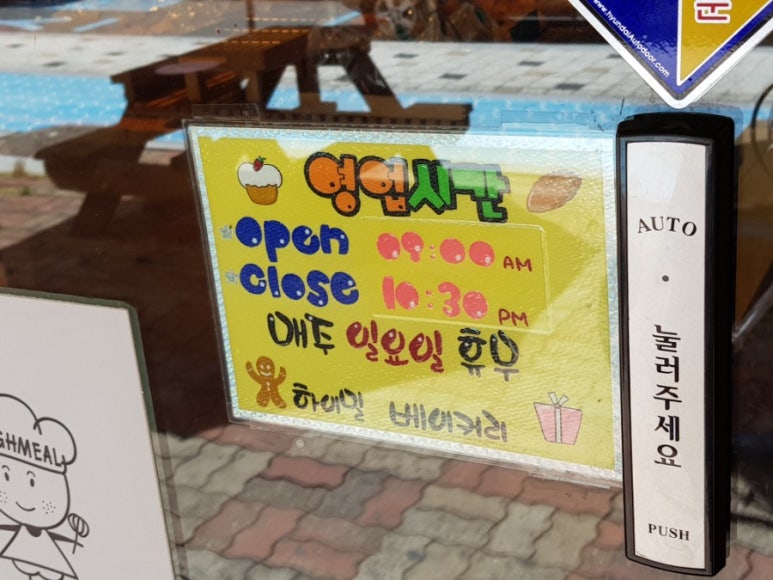 www.hyundaiAutodoor.com
영업시간
open 09:00 AM
close 10:30 PM
매주 일요일 휴무
하이밀 베이커리
GHMEAL
AUTO
눌러주세요
PUSH